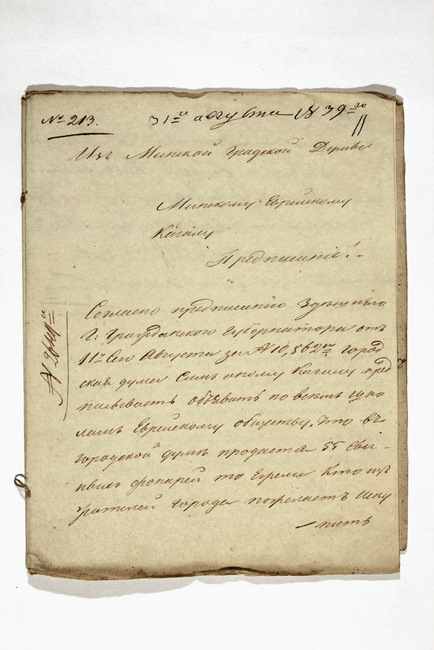 № 213. 31го августа 1839го
Изъ Минской Градской Думы
Минскому Еврейскому
Кагалу
Предписание.
Согласно предписанию Здешняго
Г: Гражданского Губернатора отъ
11го сего Августа за № 10,862м Город
ская дума симъ оному Кагалу пред
писываетъ объявить по всемъ шко
ламъ Еврейскому обществу, что въ
городской думе продается 55
фонарей то ежели кто изъ
жителей города пожелаетъ ику
пить